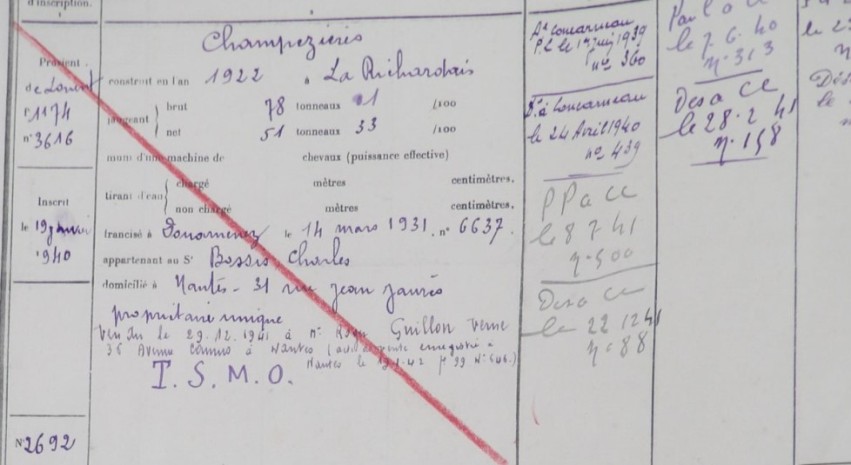 d'inscription.
Provient
de Lorient
f°1174
n°3616
Inscrit
le 19
1940
N°2692
Champezières
construit en l'an 1922 à La Richardais
jaugeant brut 78 tonneaux 01 /100
net 51 tonneaux 33 /100
muni d'une machine de chevaux (puissance effective)
tirant d'eau chargé mètres centimètres.
non chargé mètres centimètres.
francisé à Douarnenez le 14 mars 1931, n° 6637.
appartenant au Sr Bossis Charles
domicilié à Nantes - 31 rue Jean Jaurès
propriétaire unique
Vendu le 29.12.1941 à Mr Guillon Verne
35 Avenue Camus à Nantes ( enregistré à
Nantes le
T.S.M.O.
Ar Concarneau
P.C. le 1er Juin 1939
n° 360
Dr à Concarneau
le 24 Avril 1940
n° 439
PP a CC
le 8 7 41
n. 500
Desa CC
le 22 12 41
n. 88
Par l a CC
le 7. 6. 40
n. 313
Desa CC
le 28. 2 41
n. 158
le
Dés
le